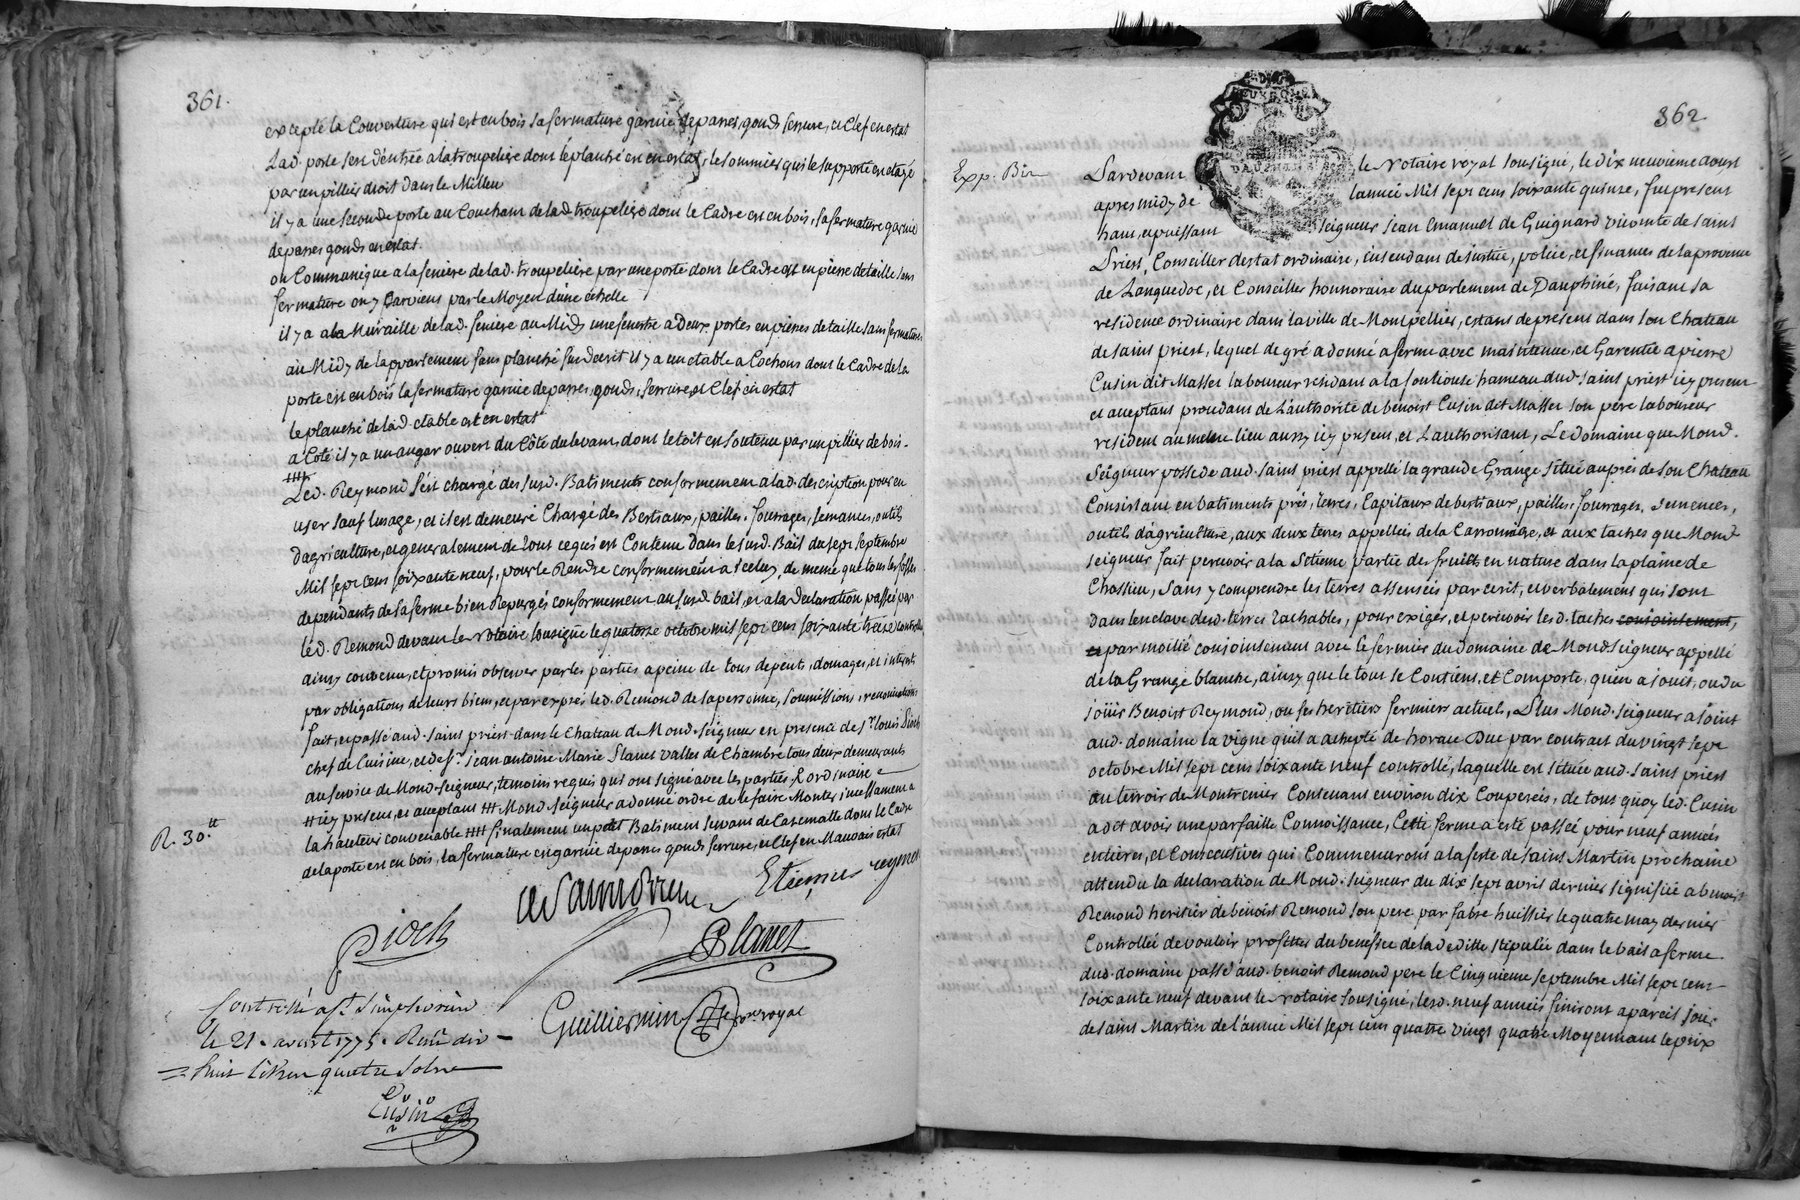 361.
excepté la Couverture qui est en bois sa fermature garnie de parres, gonds serrure, et Clef en estat
Lad. porte sert d'entrée a la troupelière dont le planché est en estat, le sommier qui le supporte est étayé
par un pillier droit dans le Millieu
il y a une seconde porte au Couchant de lad. troupeliere dont le Cadre est en bois, sa fermature garnie
de parres gonds en estat.
on Communique a la feniere de lad. troupelière par une porte dont le Cadre est en pierre de taille sans
fermature on y Parvient par le Moyen d'une échelle
il y a a la Muraille de lad. feniere au Midy une fenestre a Deux portes en pierres de taille sans fermature
au Midy de l'appartement sans planché susdecrit il y a un etable a Cochons dont le Cadre de la
porte est en bois la fermature garnie de parres, gonds, serrure, et Clef en estat
le planché de lad. etable est en estat
a Coté il y a un angar ouvert du Côté du levant, dont le toit est soutenu par un pillier de bois -
Led. Reymond s'est chargé des susd. Batiments conformement a lad. description pour en
user sauf lusage, et il est demeuré Chargé des Bestiaux, pailles, fourrages, semances, outils
dagriculture, et generalement de tout ce qui est Contenu Dans le susd. Bail du sept septembre
Mil sept cens soixante neuf, pour le Rendre conformement a Icelluy, de meme que tous les fossés
dependants de sa ferme bien Repurgés conformement au susd bail, et a la declaration passée par
led. Remond devant le Notaire soussigné le quatorze octobre mil sept cens soixante treize controllée
ainsy convenu, et promis observer par les parties a peine de tous depents, domages, et interets
par obligations de leurs biens, et par exprés led. Remond de sa personne, soumissions, renonciations
fait, et passé aud. saint priest dans le Chateau de Mond. seigneur en presence de sr. louis Pioch
chef de Cuisine, et de sr. jean antoine Marie Planet vallet de Chambre tous deux demeurants
au service de Mond. seigneur, temoins requis qui ont signé avec les parties R ordinaire
## icy present, et aceptant ### Mond. seigneur a donné ordre de le faire Monter incessament a
la hauteur convenable #### finalement un petit Batiment servant de Casematte dont le Cadre
de la porte est en bois, la fermature est garnie de parres gonds serrure, et Clef en Mauvais estat
R. 30.tt
de Saint Priest
Etienne reymon
Pioch
Planet
Guilliermin nore royal
Controllé a st. Simphorien
le 21. aoust 1775. Reçu dix -
= huit livres quatre sols
Cusin
362.
Exp. Bin
Pardevant le Notaire royal soussigné, le dix neuvieme aoust
apres midy de l'année Mil sept cens soixante quinze, fut present
haut, et puissant seigneur Jean Emanuel de Guignard vicomte de saint
Priest, Conseiller destat ordinaire, intendant de justice, police, et finances de la province
de Languedoc, et Conseiller honnoraire du parlement de Dauphiné, faisant sa
residence ordinaire dans la ville de Montpellier, estant de present dans son Chateau
de saint priest, lequel de gré a donné a ferme avec maintenue, et Garentie a pierre
Cusin dit Masser laboureur residant a la fouliouse hameau dud. saint priest icy present
et aceptant procedant de L'authorité de benoist Cusin dit Masser son père laboureur
resident au meme lieu aussy icy present, et L'authorisant, Le domaine que Mond.
Seigneur possede aud. saint priest appellé la grande Grange situé au prés de son Chateau
Consistant en batiments prés, terres, Capitaux de bestiaux, pailles, fourrages, semences,
outils d'agriculture, aux deux terres appellées de la Carronnière, et aux taches que Mond
seigneur fait percevoir a la Setieme partie des fruits en nature dans la plaine de
Chassieu, sans y comprendre les terres assensées par ecrit, et verbalement qui sont
dans lenclave desd. terres tachables, pour exiger, et percevoir lesd. taches conjointement,
et par moitié conjointement avec le fermier du domaine de Mond. seigneur appellé
de la Grange blanche, ainsy que le tout se Contient, et Comporte, qu'en a joüit, ou du
joüir Benoist Reymond, ou ses heritiers fermiers actuel, Plus Mond. seigneur a joint
aud. domaine la vigne qu'il a achepté de horace Duc par contract du vingt sept
octobre Mil sept cens soixante neuf controllé, laquelle est située aud. saint priest
au terroir de Montrenier Contenant environ dix Couperées, de tout quoy led. Cusin
a dit avoir une parfaitte Connoissance, Cette ferme a esté passée pour neuf années
entieres, et Consecutives qui Commenceront a la feste de saint Martin prochaine
attendu la declaration de Mond. seigneur du dix sept avril dernier signifiée a benoist
Remond heritier de benoist Remond son pere par fabre huissier le quatre may dernier
Controllée de vouloir profitter du benefice de la deditte stipulée dans le bail a ferme
dud. domaine passé aud. benoist Remond pere le Cinquieme septembre Mil sept cent
soixante neuf devant le Notaire soussigné, lesd. neuf années finiront a pareil jour
de saint Martin de l'année Mil sept cens quatre vingt quatre Moyennant le prix